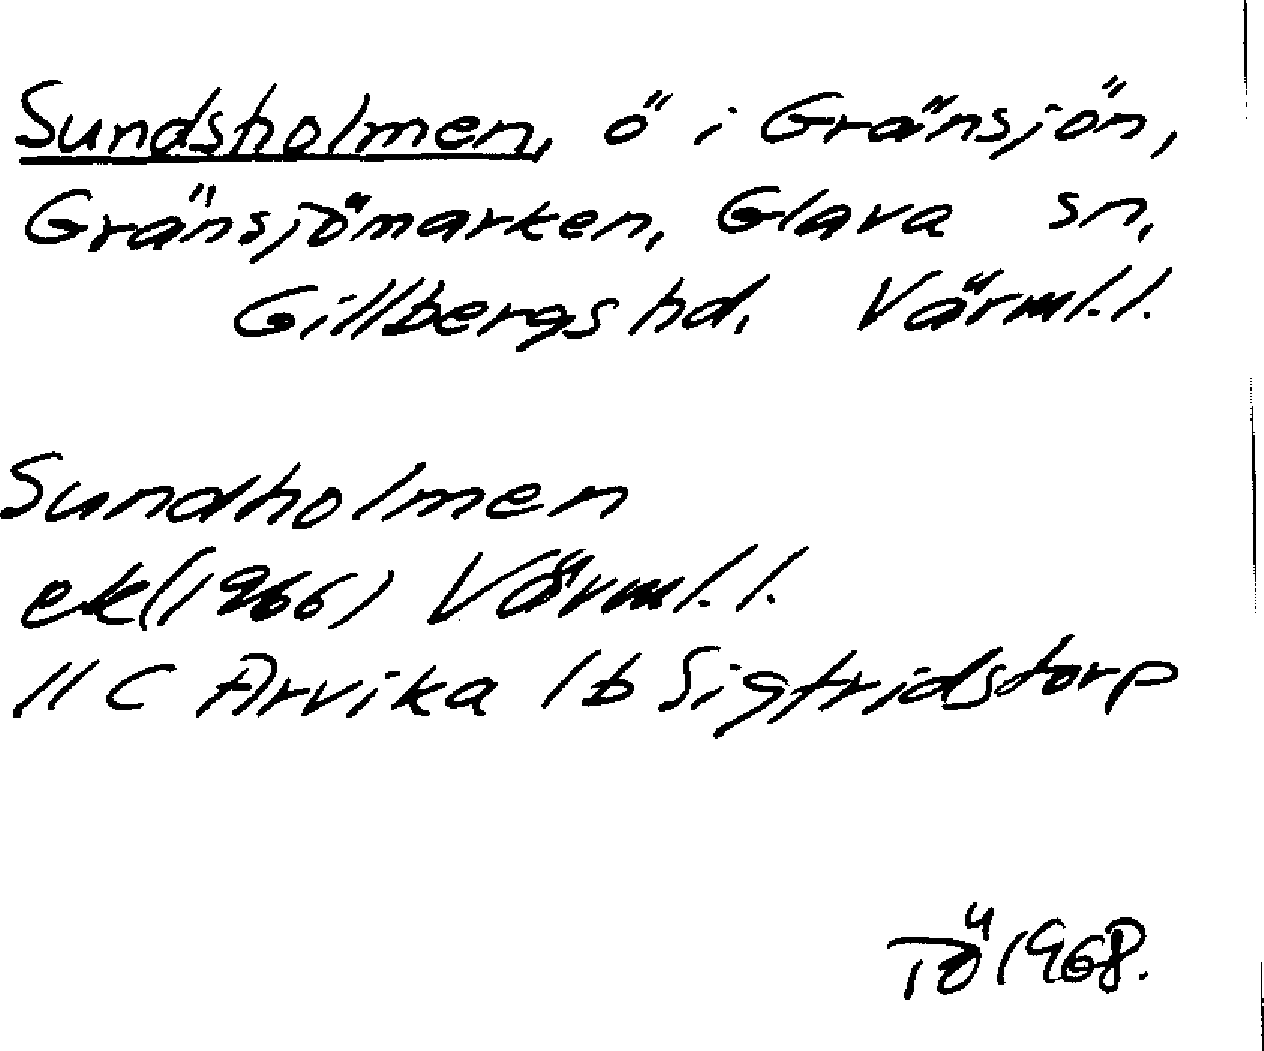 Sundsholmen, ö i Gränsjön,
Gränsjömarken, Glava sn,
Gillbergs hd. Värml.l.
Sundholmen
ek(1966) Värml.l.
11 C Arvika 1b Sigfridstorp
TÖ 1968.